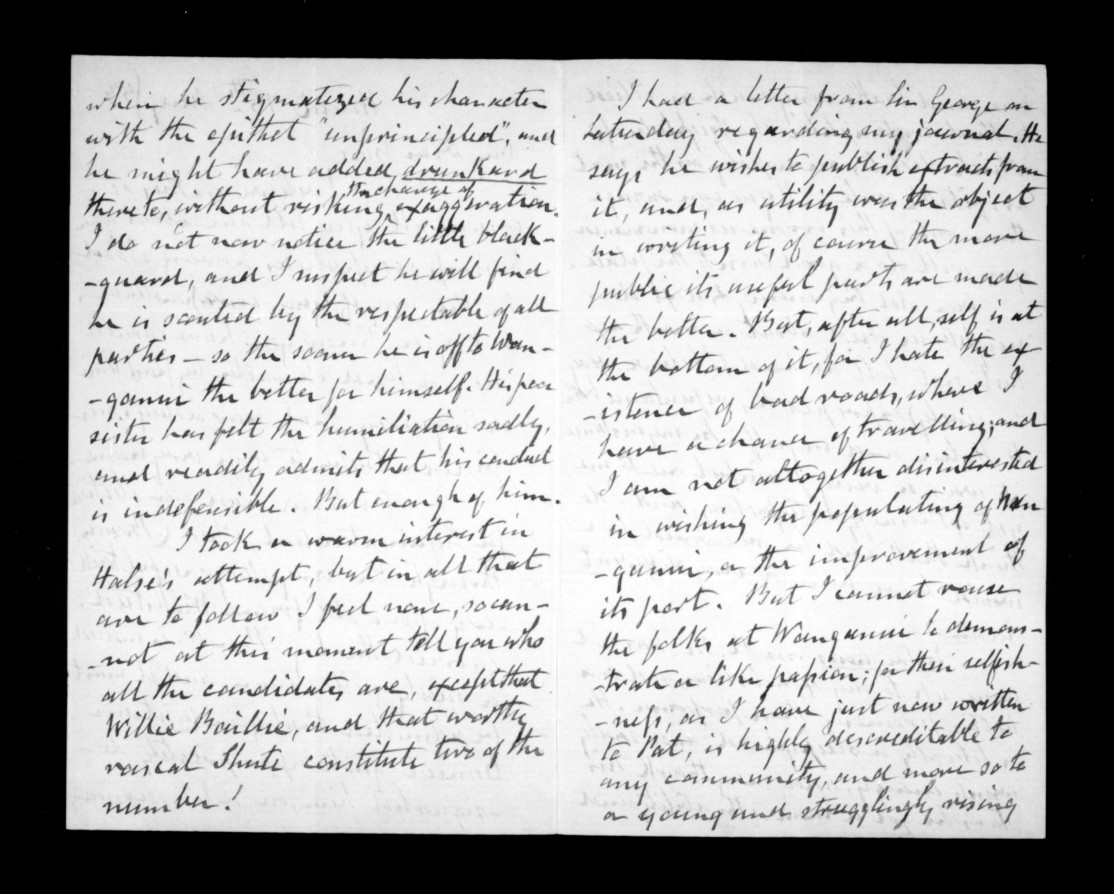 when he stigmatized his character
with the epithet "unprincipled", and
he might have added drunkard
the charge of
thereto, without risking exaggeration.
I do not now notice the little black-
-guard, and I suspect he will find
he is scouted by the respectable of all
parties – so the sooner he is off to Wan-
-ganui the better for himself. His poor
sister has felt the humiliation sadly,
and readily admits that his conduct
is indefensible. But enough of him.
I took a warm interest in
Halse's attempt, but in all that
are to follow I feel none, so can-
-not at this moment tell you who
all the candidates are, except that
Willie Baillie, and that worthy
rascal Shute constitute two of the
number!
I had a letter from Sir George on
Saturday regarding my journal. He
says he wishes to publish extracts from
it, and, as utility was the object
in writing it, of course the more
public its useful parts are made
the better. But, after all, self is at
the bottom of it, for I hate the ex-
-istence of bad roads, where I
have a chance of travelling; and
I am not altogether disinterested
in wishing the populating of Wan
-ganui, or the improvement of
its port. But I cannot rouse
the folks at Wanganui to demons-
-trate a like passion; for their selfish-
-ness, as I have just now written
to Pat, is highly descreditable to
any community, and more so to
a young and strugglingly rising